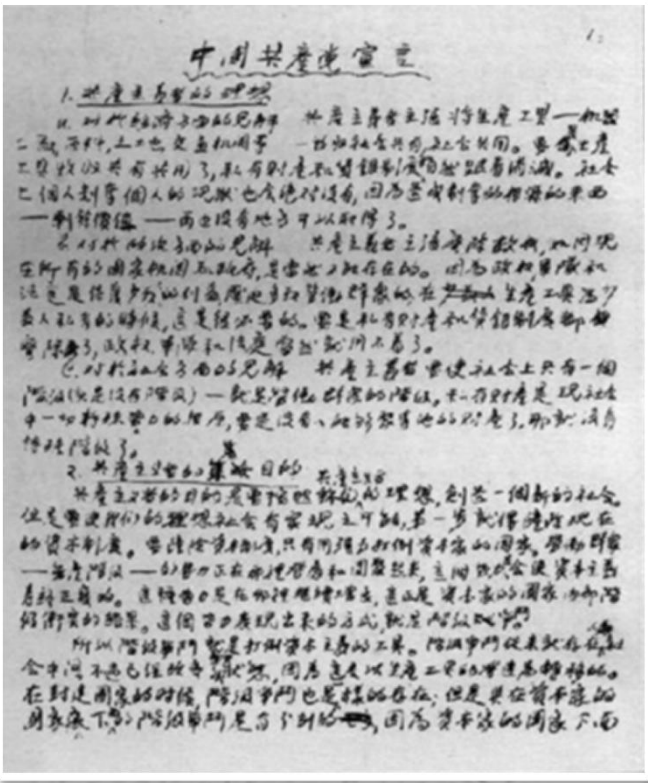 中国共產党宣言
1. 共產主義者的理想
A. 对於經济方面的見解 共產主義者主張將生產工具——机器
工廠,原料,土地,交通机関等——收归社会共有,社会共用。要是生產
工具收归共有共用了,私有財產和賃銀制度自然跟着消滅。社会
上個人剥奪個人的現狀也会絕对没有,因為造成剥奪的根源的東西
——剩餘價值——再也没有地方可以取得了。
B. 对於政治方面的見解 共產主義者主張廢除政权,如同現
在所有的国家机関和政府,是當然不能存在的。因為政权,軍隊和
法庭是保護少数人的利益,壓迫多数勞働群衆的;在生產工具為少
数人私有的時候,这是很必要的。要是私有財產和賃銀制度都
廢除了,政权、軍隊和法庭當然就用不着了。
C. 对於社会方面的見解 共產主義者要使社会上只有一個
階級(就是没有階級)——就是勞働群衆的階級。私有財產是現社会
中一切特殊勢力的根源,要是没有人能够聚集他的財產了,那就没有
特殊階級了。
2. 共產主义者的目的
共產主义者的目的是要按照共產主义者的理想,創造一個新的社会。
但是要使我们的理想社会有實現之可能,第一步就得鏟除現在
的資本制度。要鏟除資本制度,只有用强力打倒資本家的国家。勞働群衆
——無產階级——的勢力正在那裡發展和團聚起來,这個勢力会使資本主義
寿終正寝的。这種勢力是在那裡継續增長,这正是資本家的国家内部階
級衝突的結果。这個勢力表現出來的方式,就是階級斗争。
所以階級斗争就是打倒資本主義的工具。階級斗争從來就存在人類社
会中間,不过已經改变狀態,因為这是以生產工具的
在封建国家的時候,階級斗争也是一樣的存在;但是與在資本家的
国家底下的階級斗争是有分别的,因為資本家的国家下面